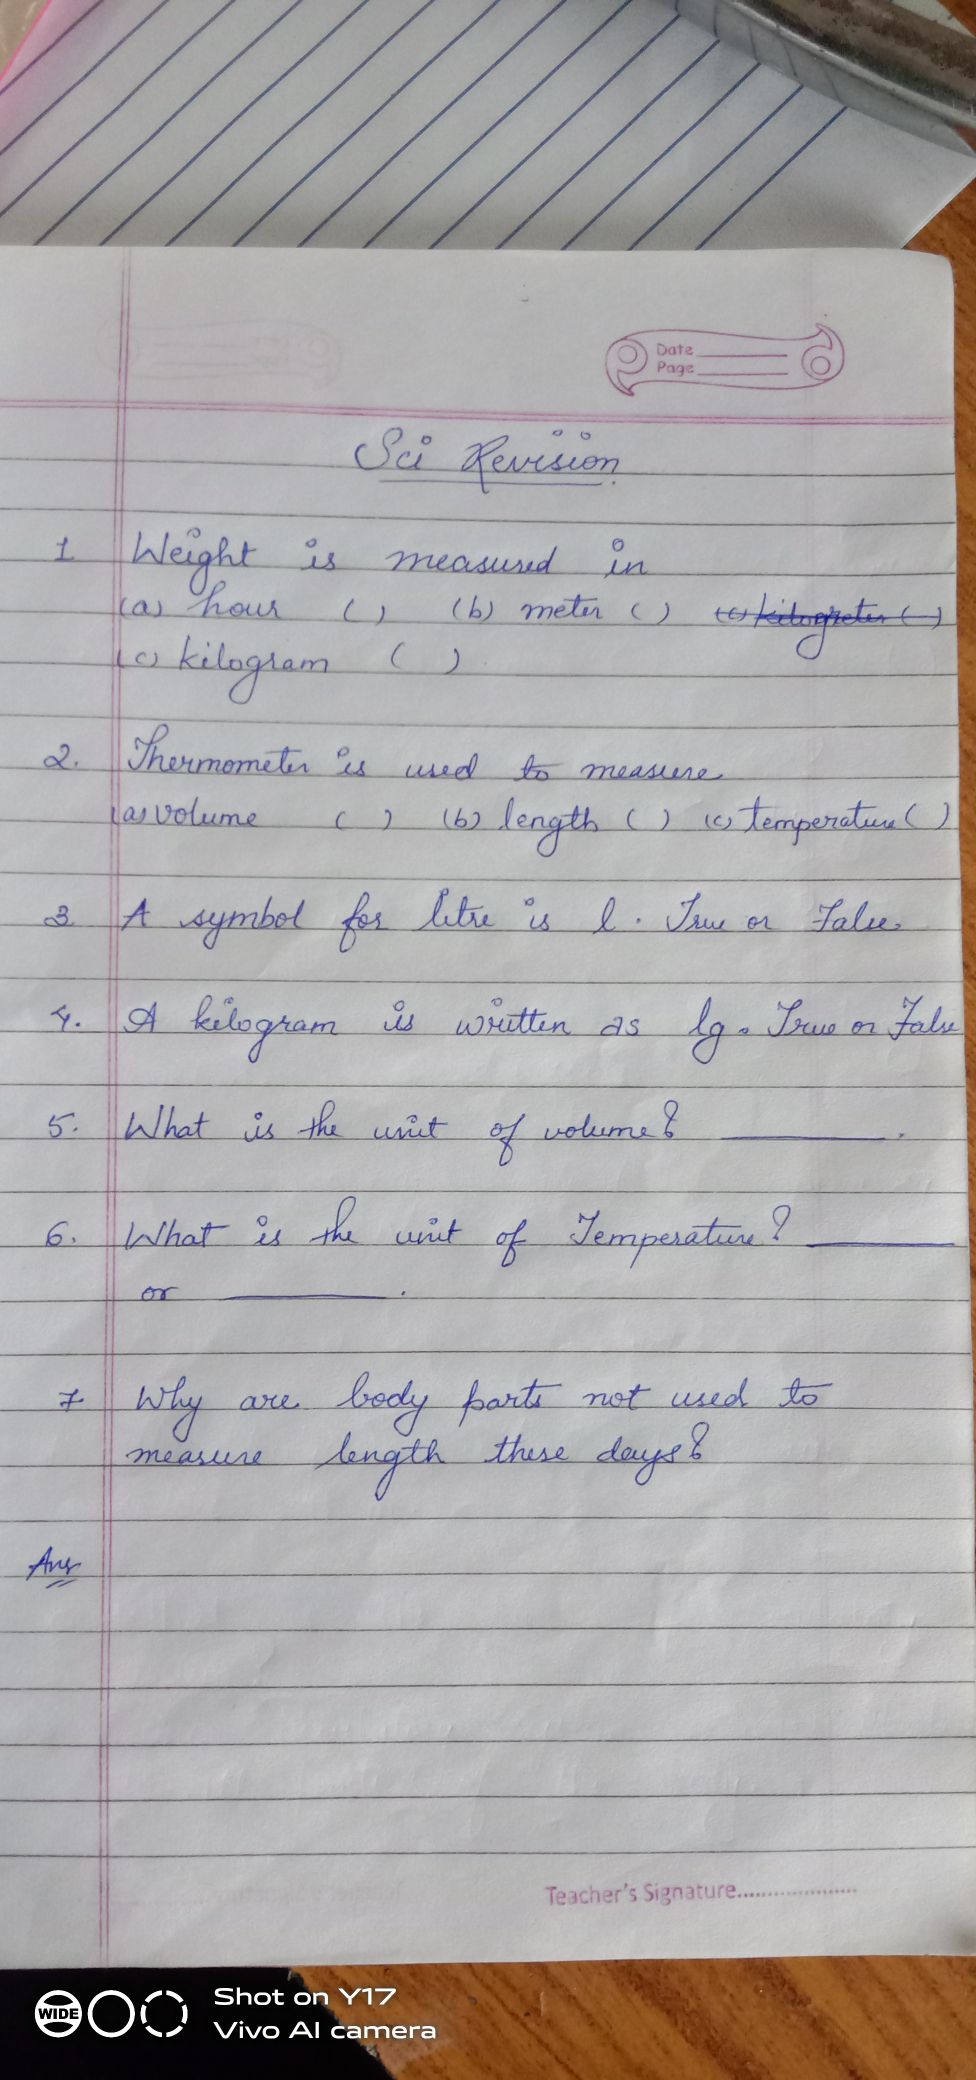 Date
Page
Sci Revision
1 Weight is measured in
(a) hour ( ) (b) meter ( )
(c) kilogram ( )
2. Thermometer is used to measure
(a) volume ( ) (b) length ( ) (c) temperature ( )
3 A symbol for litre is l. True or False.
4. A kilogram is written as lg. True or False
5. What is the unit of volume? ________.
6. What is the unit of Temperature? ________
or ________.
7 Why are body parts not used to
measure length these days?
Ans
Teacher's Signature....................
WIDE
Shot on Y17
Vivo AI camera